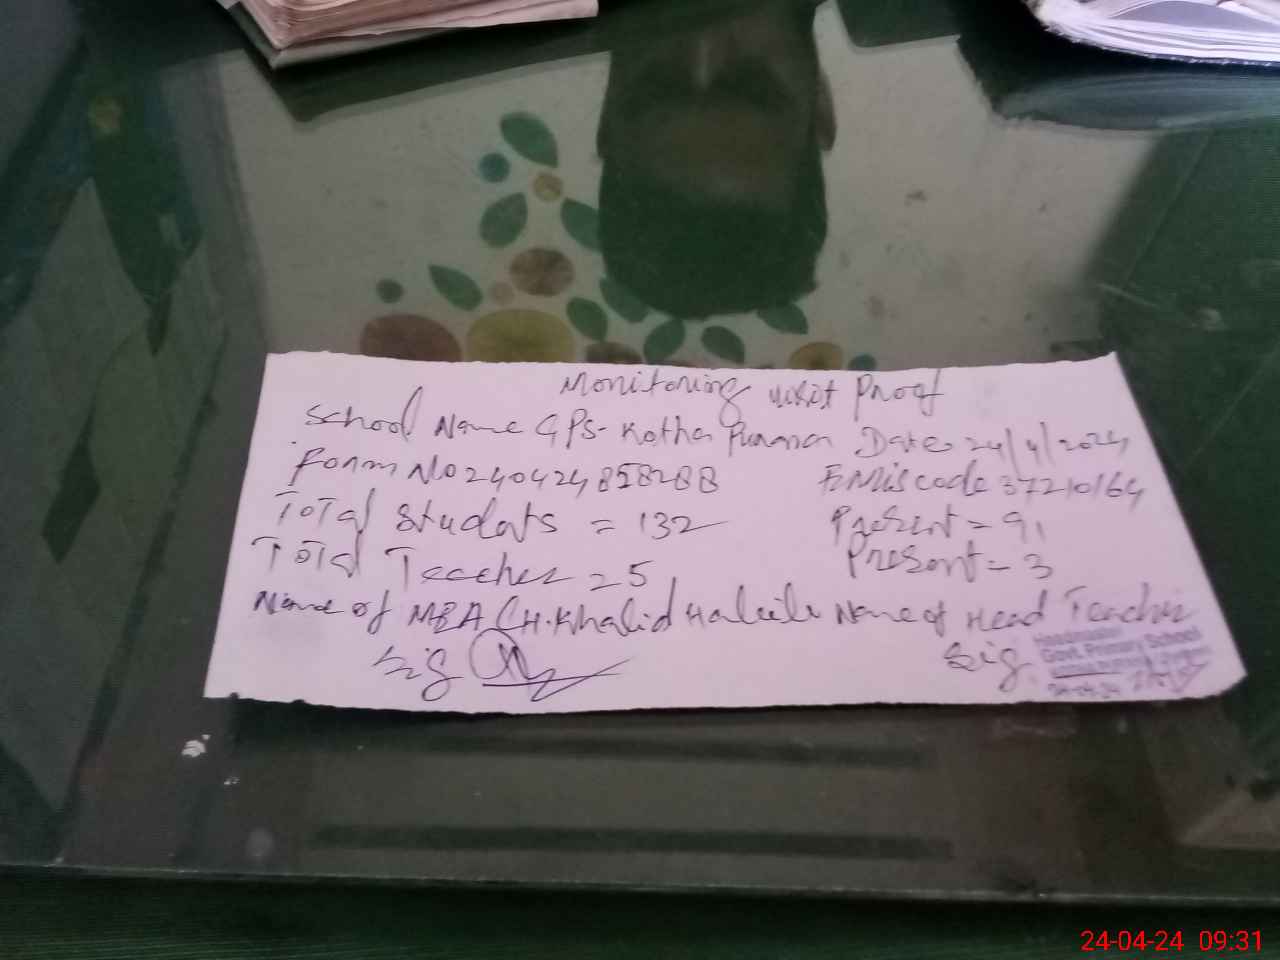 Monitoring visit Proof
School Name GPS- Kotha Purana Date 24/4/2024
Form No 240424858288 EMIS code 37210164
Total Students = 132 Present = 91
Total Teacher = 5 Present = 3
Name of MEA CH. Khalid Name of Head Teacher
Sig Sig
Headmaster
Govt. Primary School
24-04-24
24-04-24 09:31